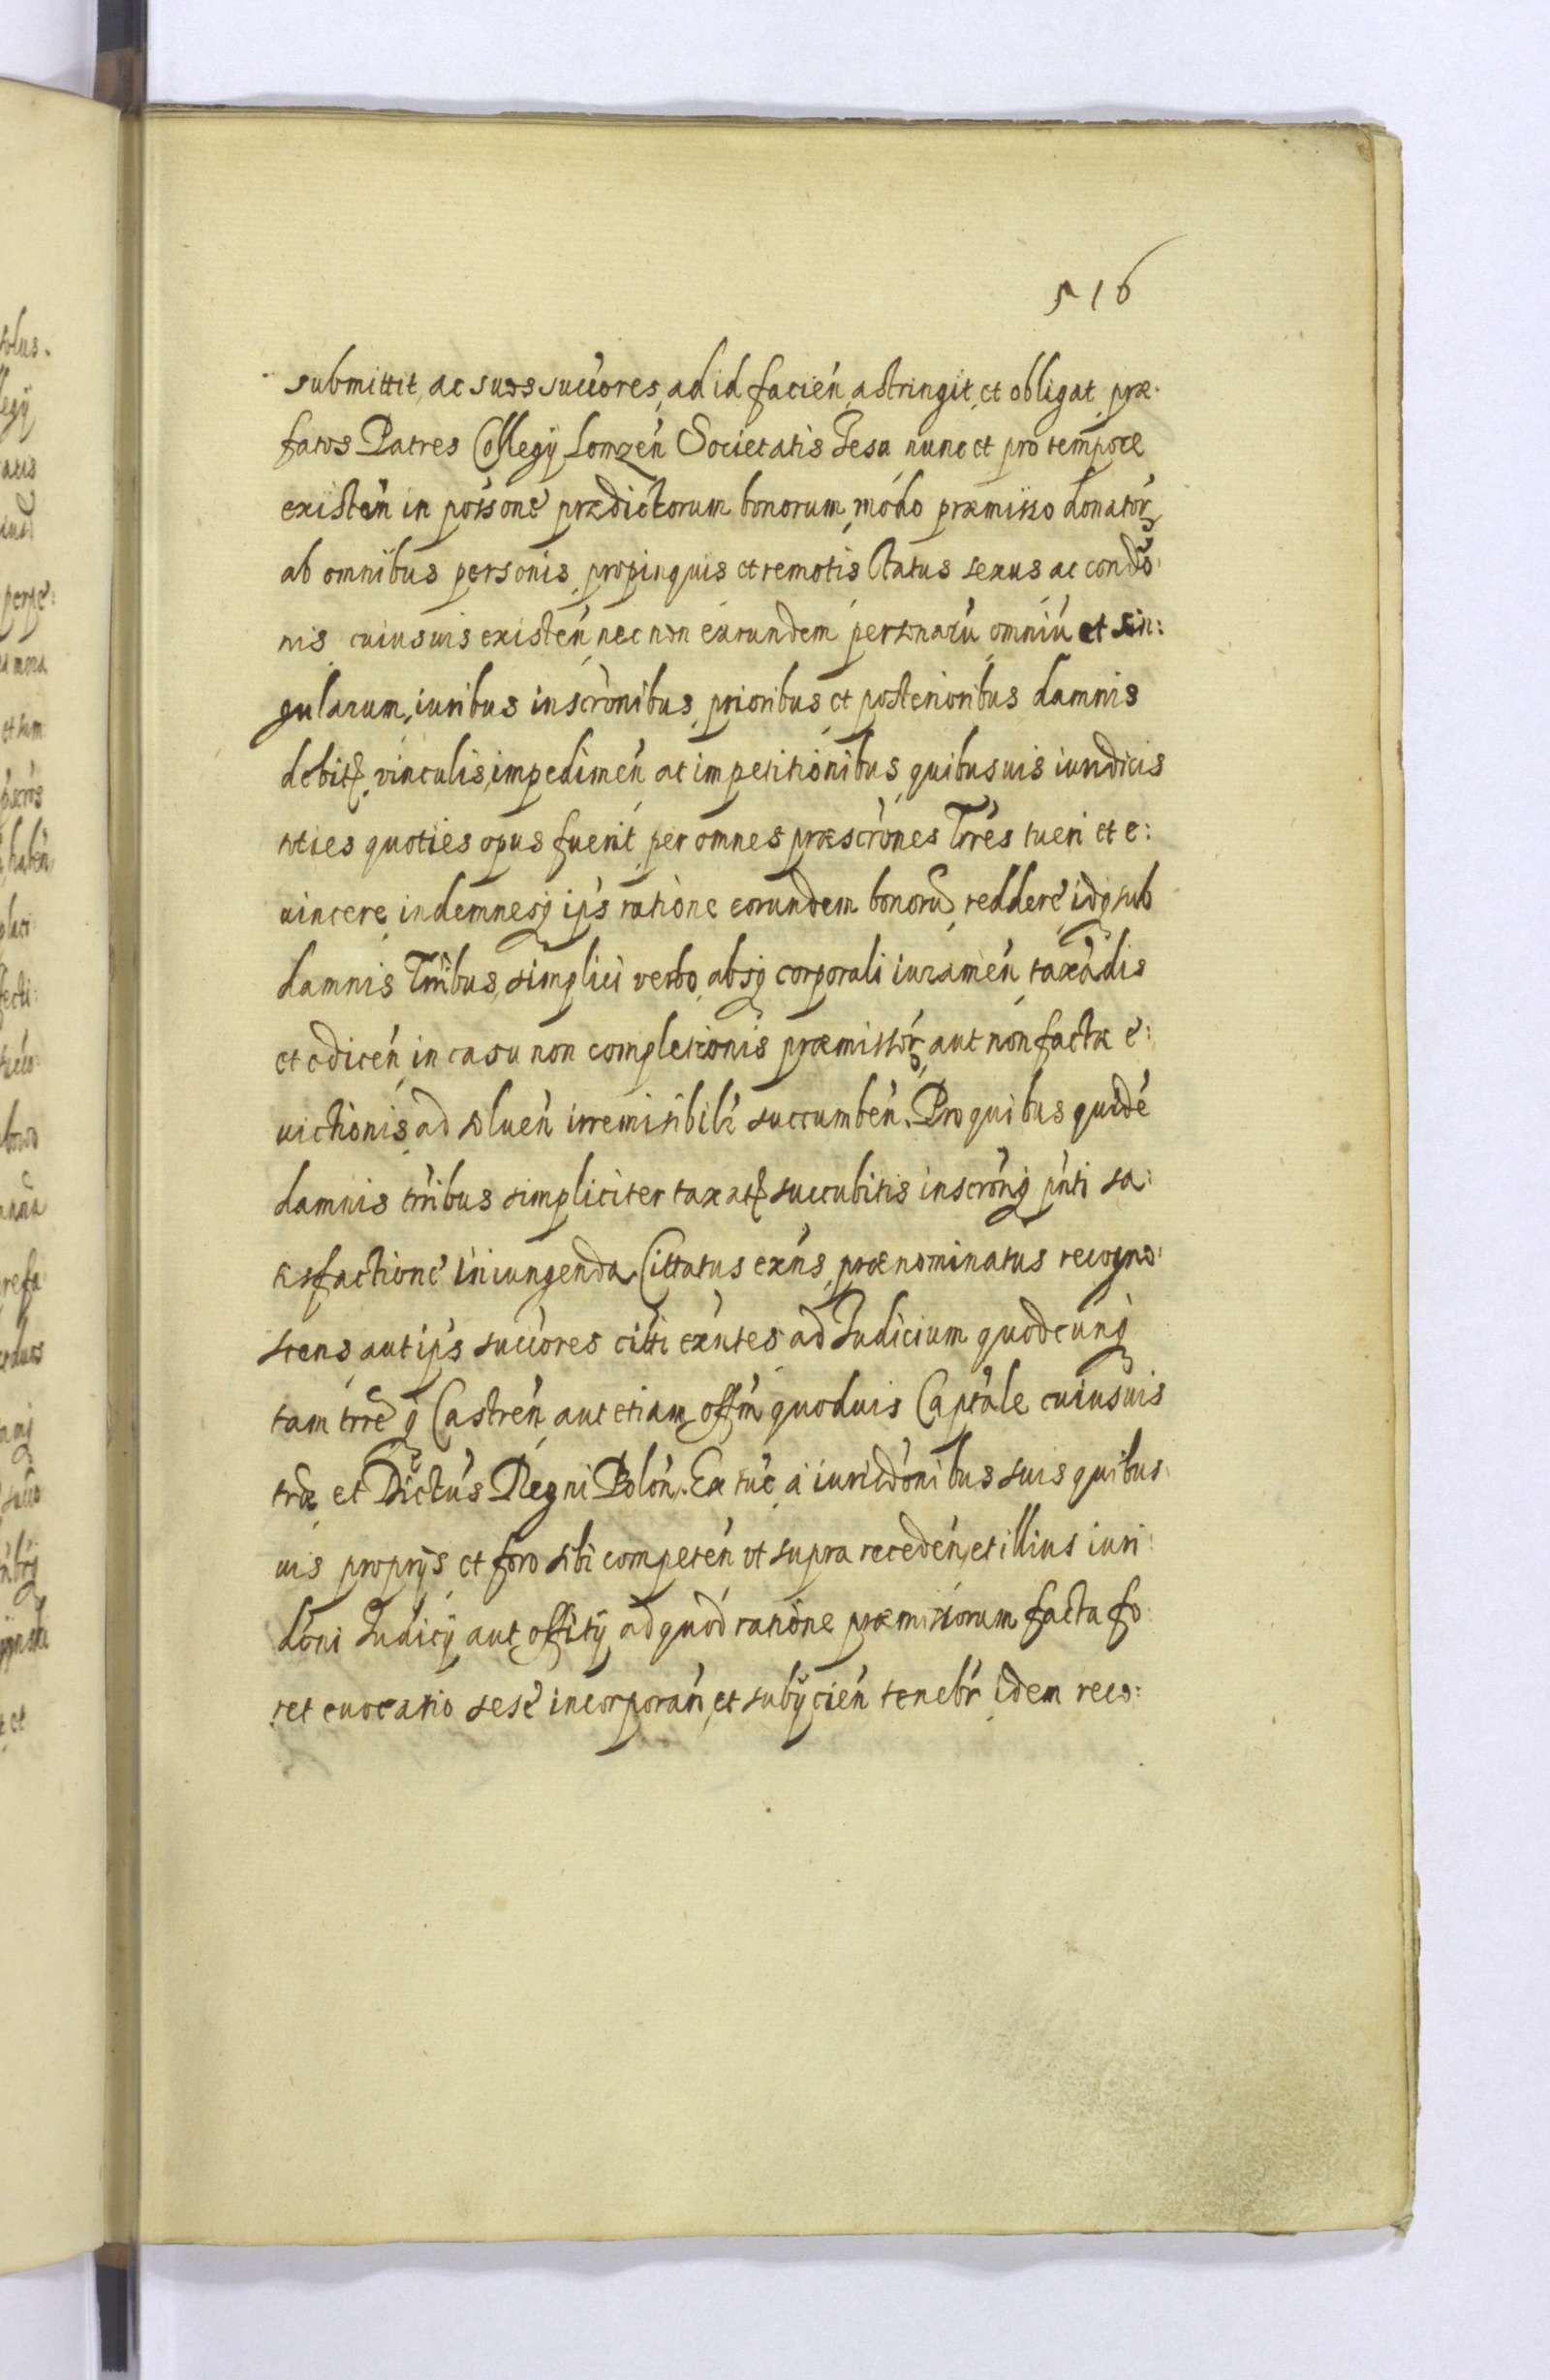 516
submittit, ac suos succ̀ores, ad id facień, astringit, et obligat, præ:
fatos Patres Collegÿ Lomzeń Societatis Jesu nunc et pro tempore
existeń in posśone prædictorum bonorum, modo præmisso donator̀
ab omnibus personis, propinquis et remotis status sexus ac condo:
nis cuiusuis existeń, nec non earundem personarū, omniū et sin:
gularum, iuribus inscrònibus, prioribus, et posterioribus damnis
debit, vinculis, impedimeń ac impetitionibus, quibusuis iuridicis
toties quoties opus fuerit, per omnes præscrònes Trr̀es tueri et e:
uincere, indemnesq ip̀s ratiòne eorundem bonorū, reddere, idq sub
damnis Trr̀ibus, simplici verbo, absq corporali iurameń, taxādis
et ediceń, in casu non completionis præmissoŕ, aut non factæ e:
uictionis, ad solueń irremisibilr̀ succumbeń. Pro quibus quidē
damnis trr̀ibus simpliciter taxat succubitis inscròniq p̀nti sa:
tisfactione iniungenda, Cittatus exǹs, prænominatus recogno:
scens, aut ip̀s succ̀ores citt̀i exǹtes ad Judicium quodcunq̀
tam trr̀e q Castreń, aut etiam off̀m quoduis Capt̀ale cuiusuis
trr̀æ et Dictùs Regni Poloń. Ex tūc, à iuriсdònibus suis quibus:
uis proprÿs et foro sibi competeń vt supra recedeń, et illius iuri:
dòni Judicÿ aut, offitÿ ad quod ratiòne præmissorum facta fo:
ret euocatio sese incorporań, et subÿcień tenebr̀, idem reco: